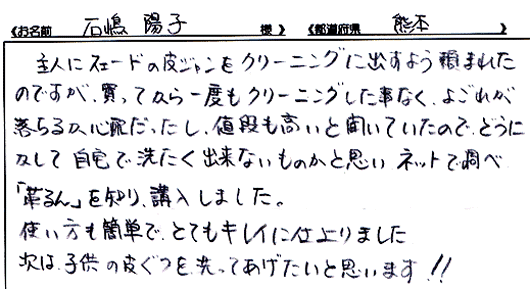 《お名前 石嶋 陽子 様 》 《都道府県 熊本 》
主人にスエードの皮ジャンをクリーニングに出すよう頼まれた
のですが、買ってから一度もクリーニングした事なく、よごれが
落ちるか心配だったし、値段も高いと聞いていたので、どうに
かして自宅で洗たく出来ないものかと思いネットで調べ
「革るん」を知り、購入しました。
使い方も簡単で、とてもキレイに仕上りました
次は、子供の皮ぐつを洗ってあげたいと思います!!